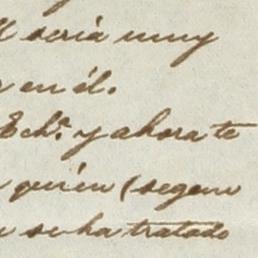 seria muy
en él.
Echª. y ahora te
quien (segun
se ha tratado